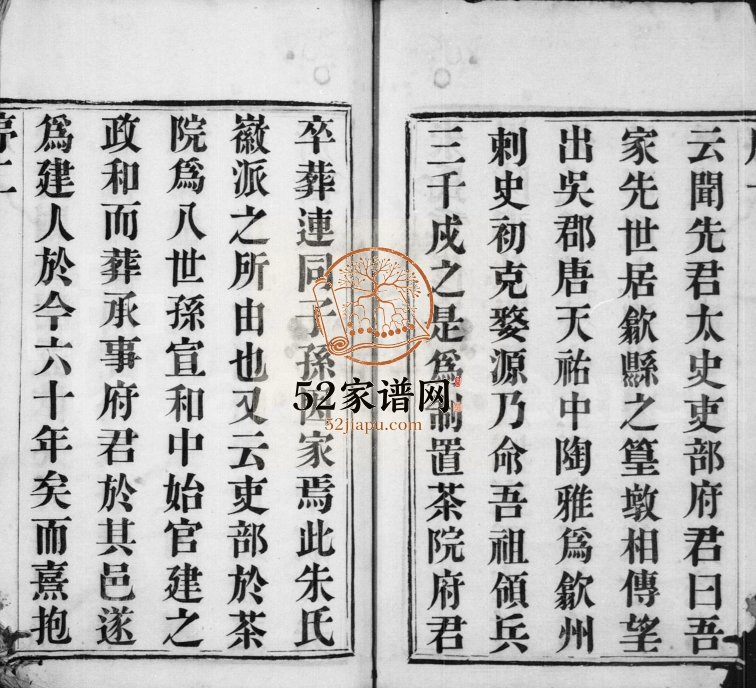 云聞先君太史吏部府君曰吾
家先世居歙縣之篁墩相傳望
出吳郡唐天祐中陶雅爲歙州
刺史初克婺源乃命吾祖領兵
三千戍之是爲制置茶院府君
卒葬連同子孫因家焉此朱氏
徽派之所由也又云吏部於茶
院爲八世孫宣和中始官建之
政和而葬承事府君於其邑遂
爲建人於今六十年矣而熹抱
52家谱网
52jiapu.com